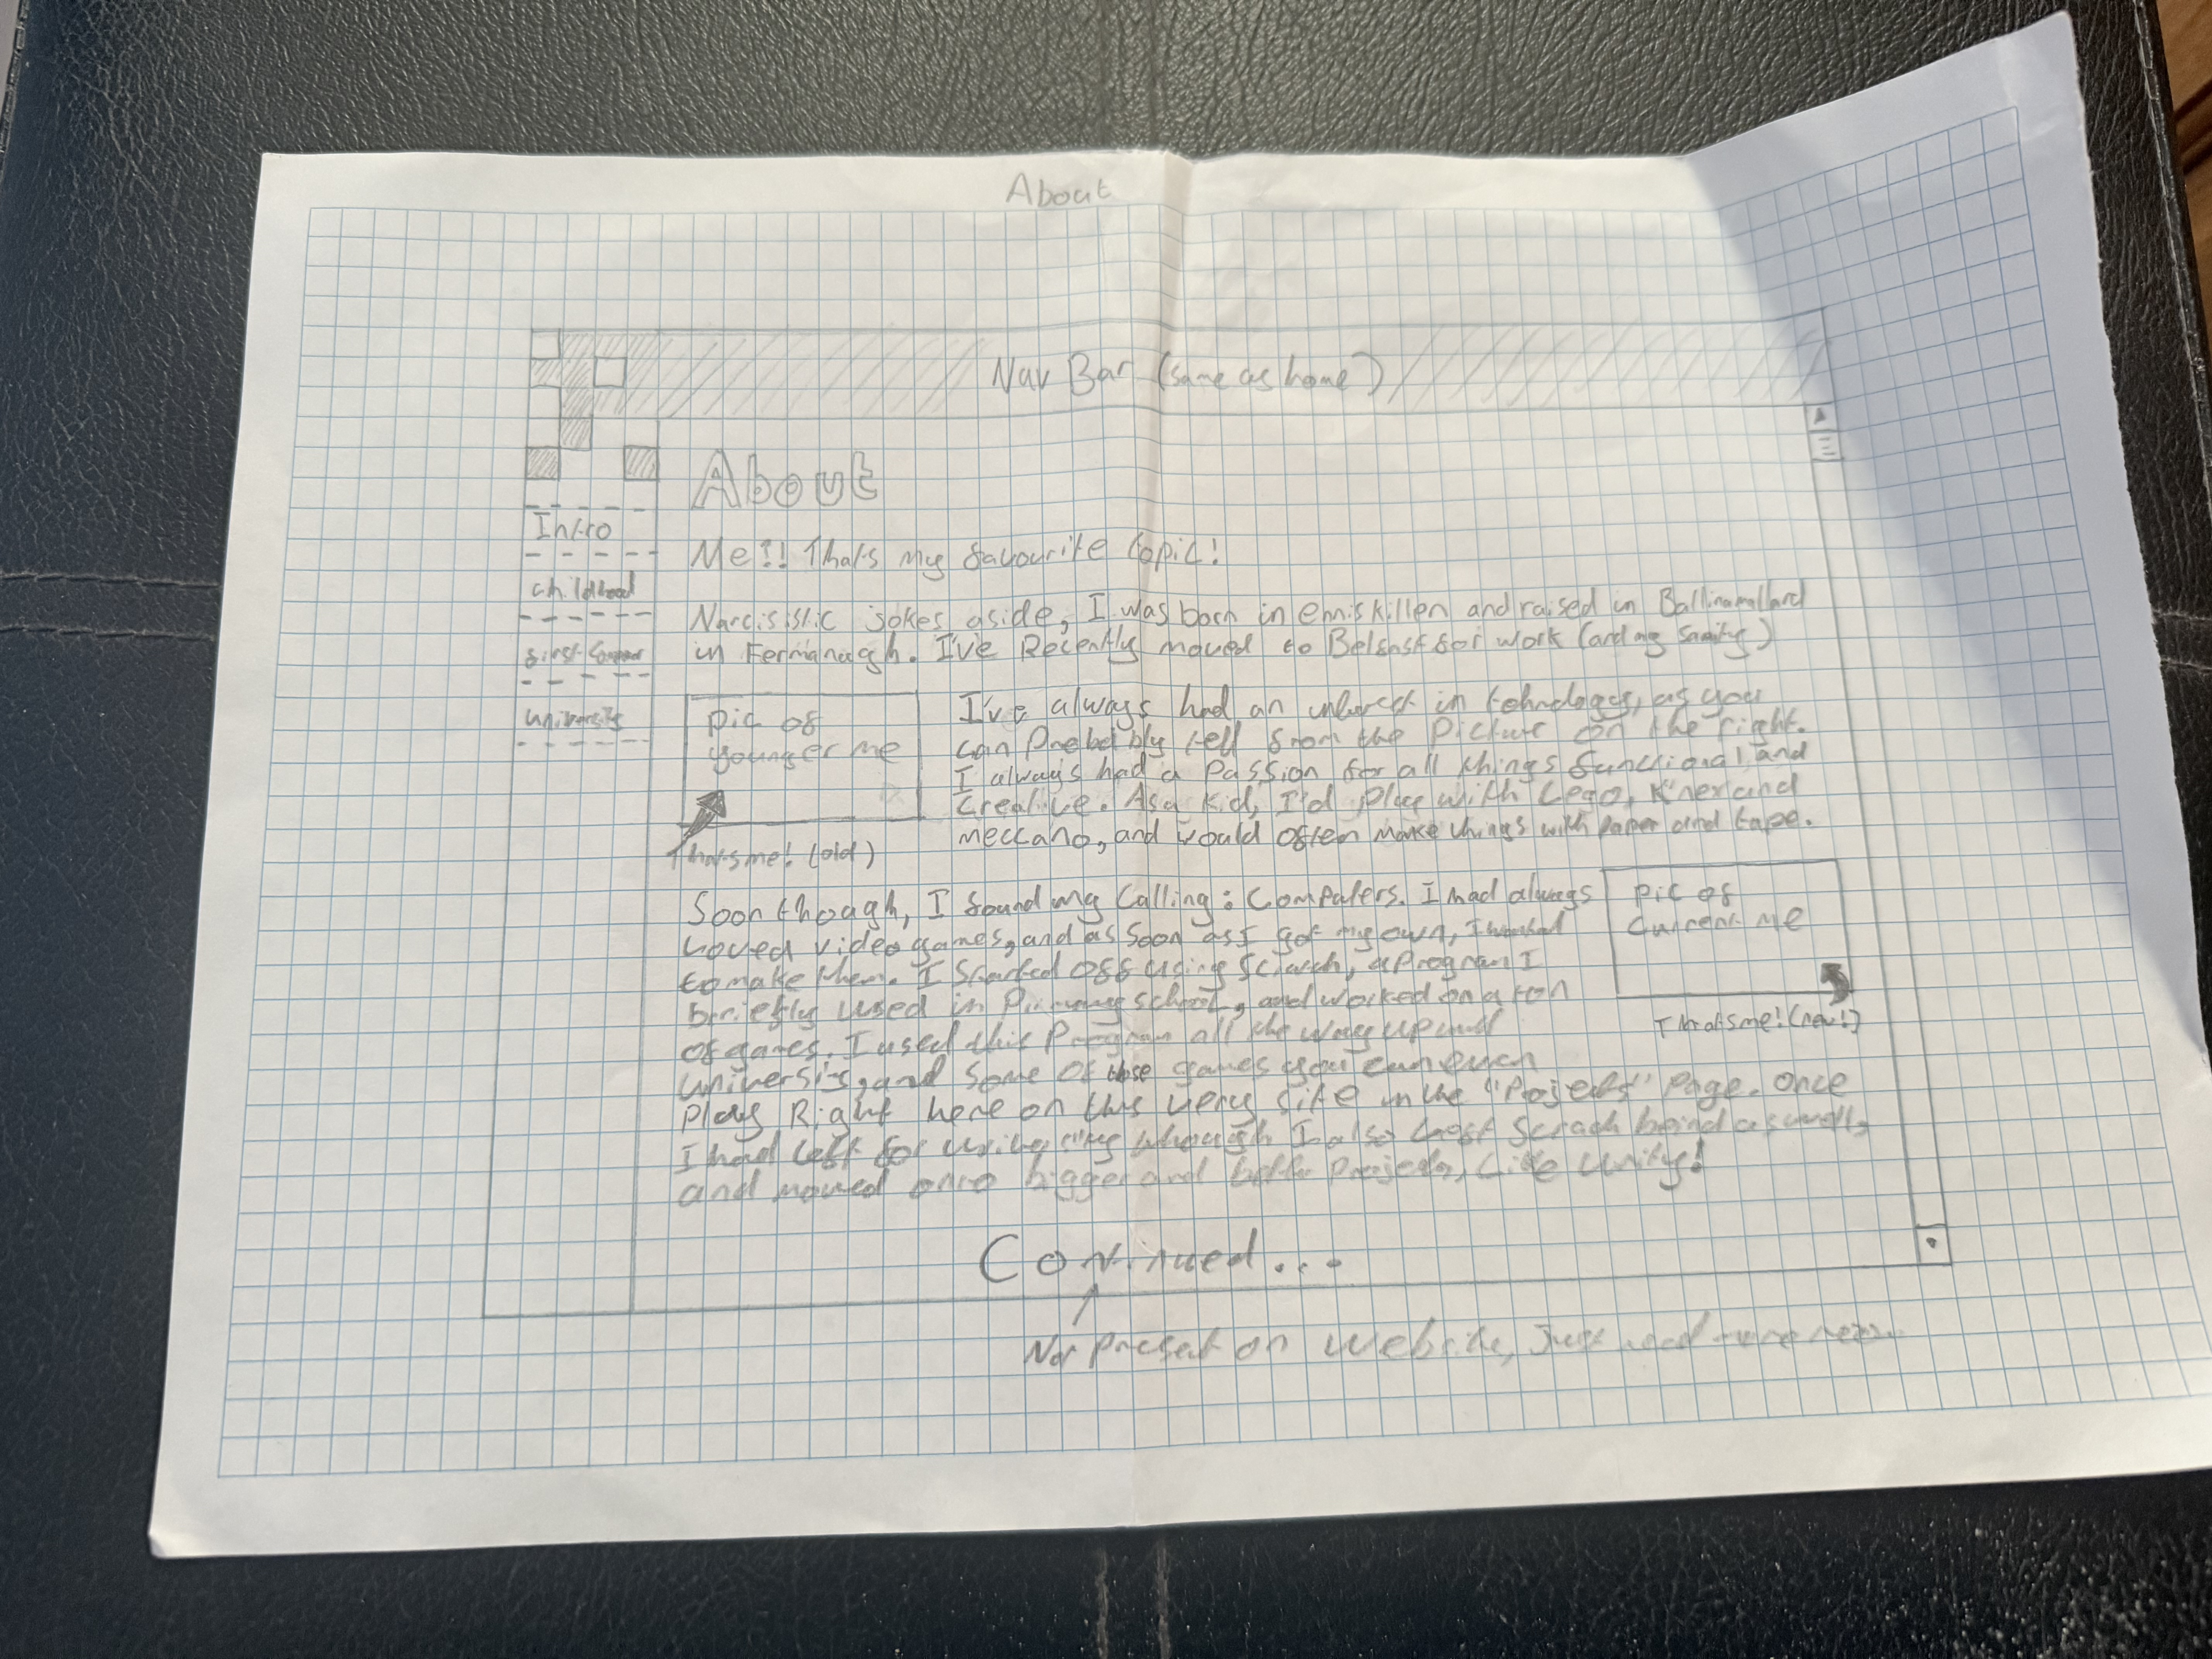 About
Nav Bar (same as home)
About
Intro
childhood
first
university
Me?! Thats my favourite topic!
Narcisistic jokes aside, I was born in enniskillen and raised in Ballinamallard
in Fermanagh. I've Recently moved to Belfast for work (and my sanity)
pic of
younger me
Thats me! (old)
I've always had an interest in tehnology, as you
can Probably tell from the Picture on the right.
I always had a Passion for all things functional and
Creative. As a kid, I'd play with Lego, K'nex and
meccano, and would often make things with paper and tape.
Soon though, I found my Calling: Computers. I had always
Loved video games, and as soon as I got my own, I wanted
to make them. I Started off using Scratch, a program I
briefly used in Primary school, and worked on a ton
of games. I used this Program all the way up until
university, and some of those games you can even
play Right here on this very site in the "Projects" page. Once
I had left for university though I also left Scrach behind as well,
and moved onto bigger and better Projects, Like Unity!
pic of
Current me
Thats me! (new!)
Continued...
Not present on website, Just need more